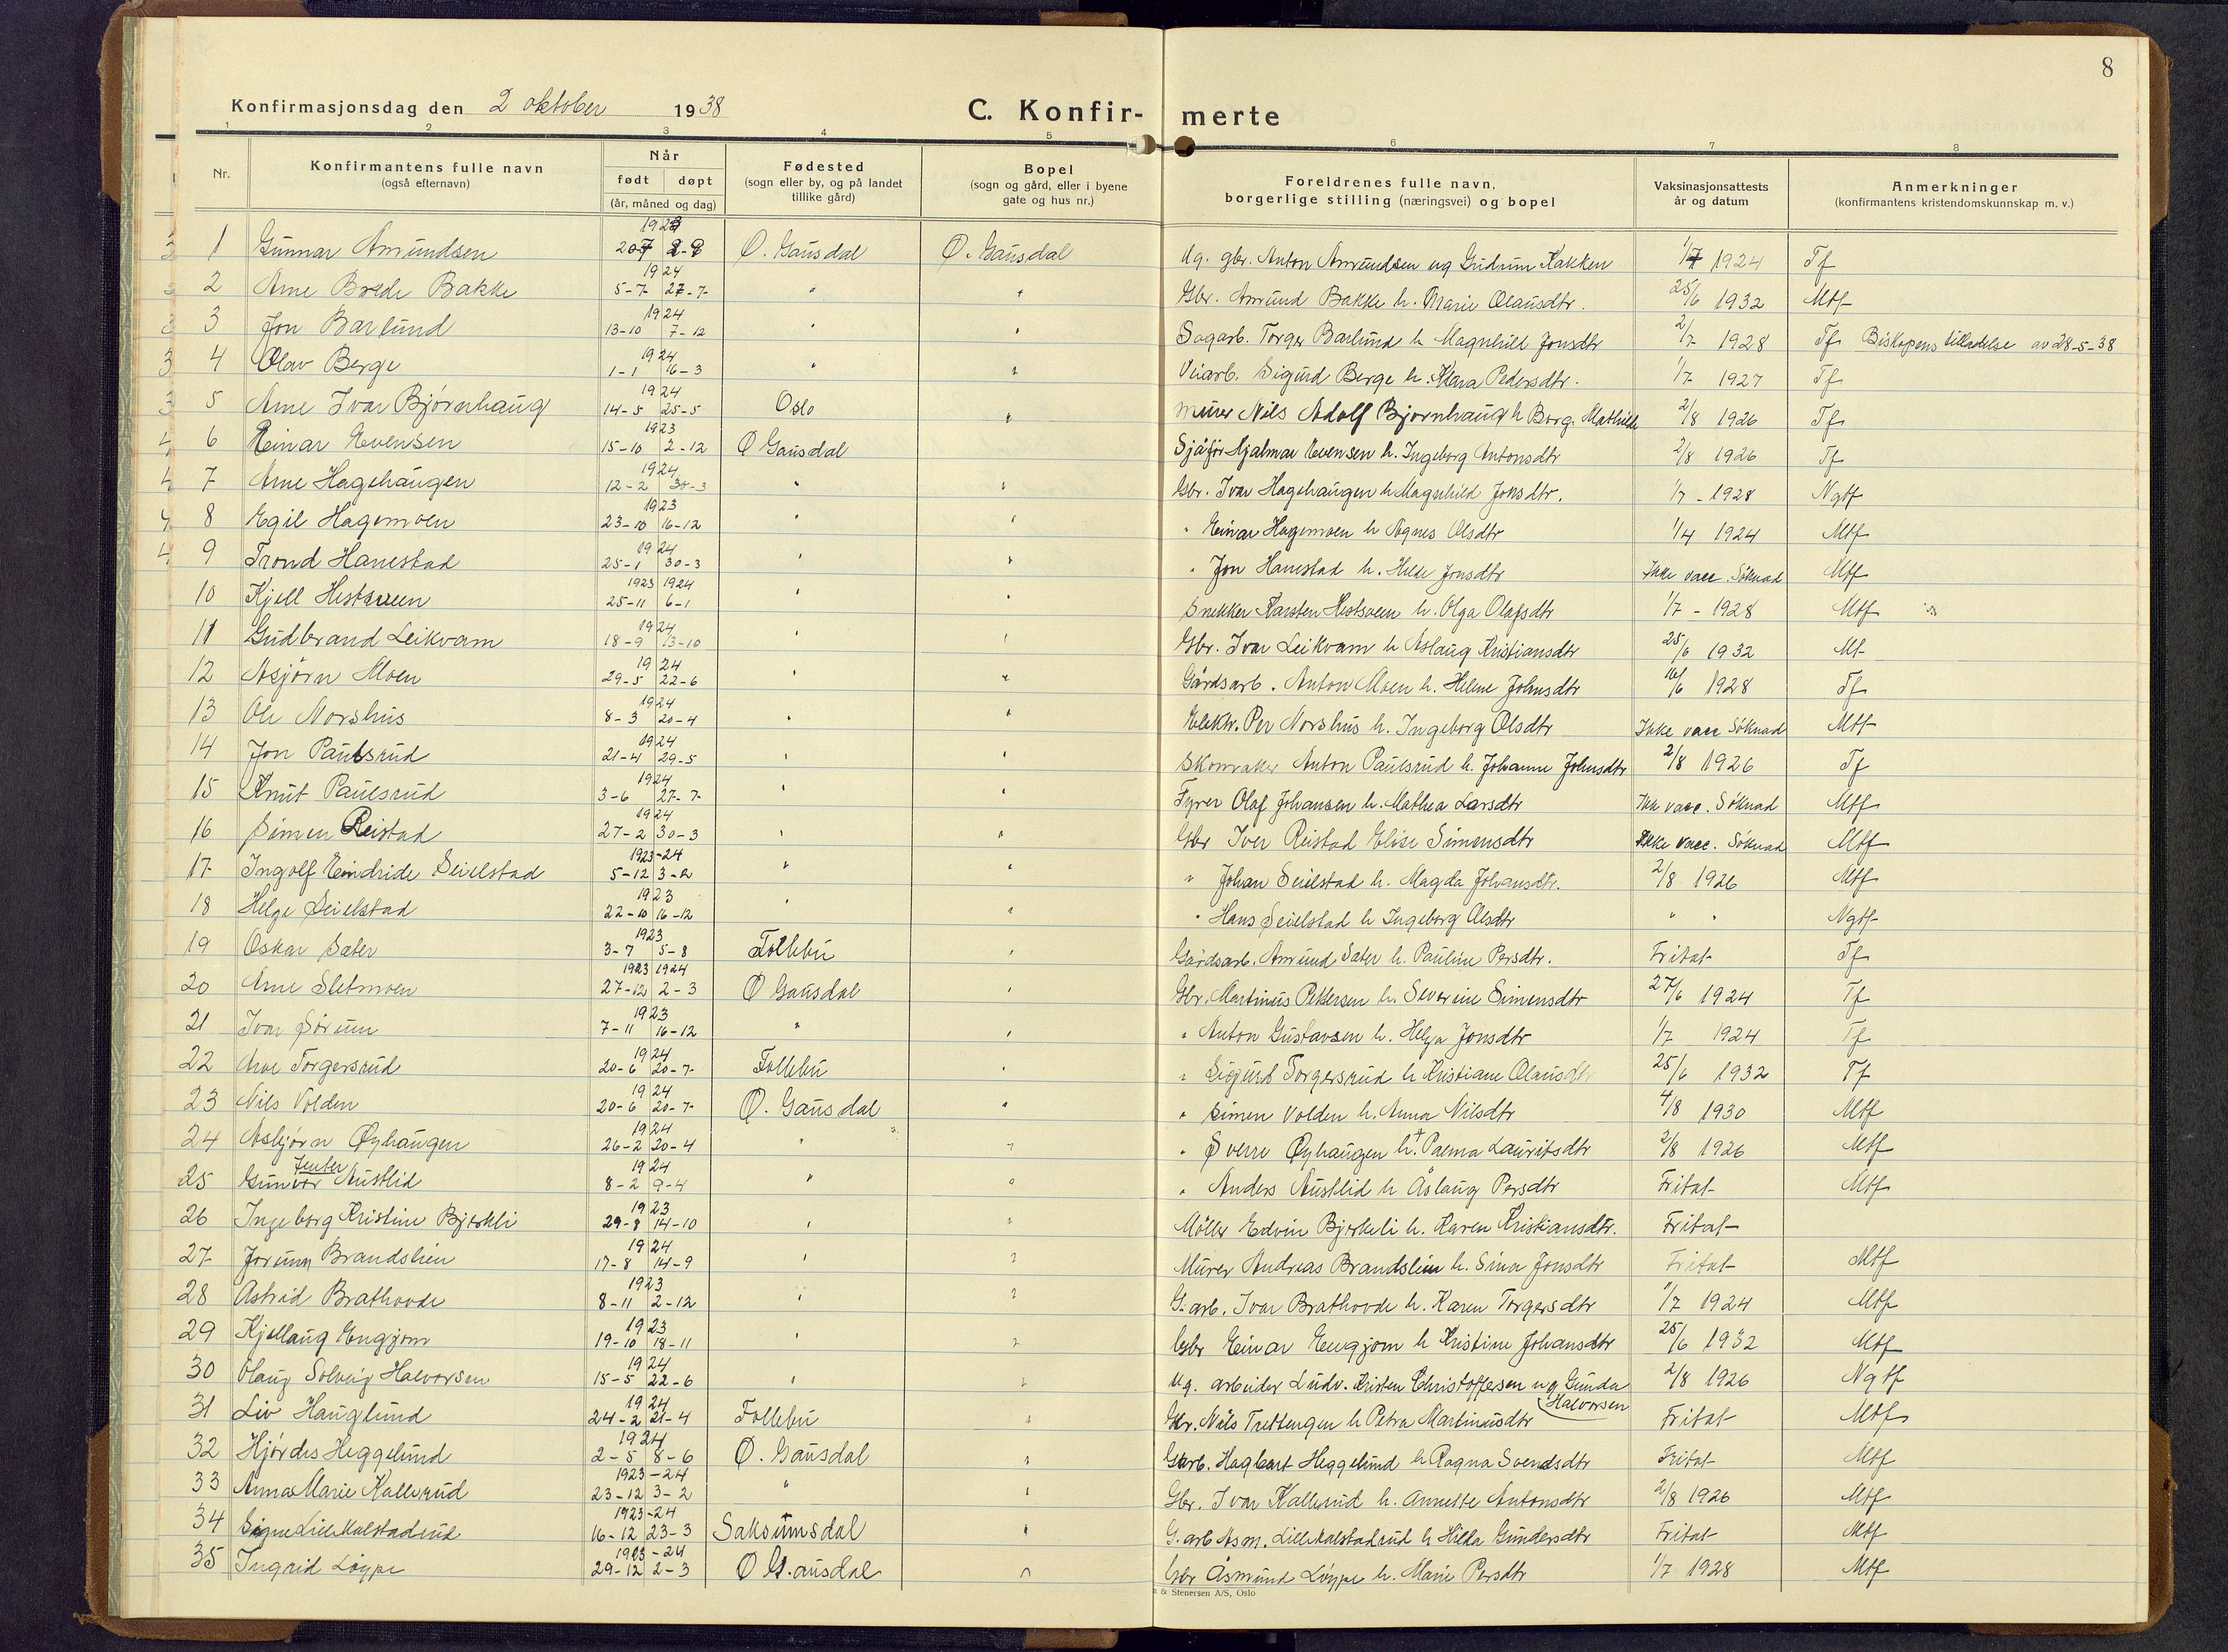 8
Konfirmasjonsdag den 2 oktober 1938
C. Konfir- merte
1 2 3 4 5 6 7 8
Nr.
Konfirmantens fulle navn
(også efternavn)
Når
født døpt
(år, måned og dag)
Fødested
(sogn eller by, og på landet
tillike gård)
Bopel
(sogn og gård, eller i byene
gate og hus nr.)
Foreldrenes fulle navn,
borgerlige stilling (næringsvei) og bopel
Vaksinasjonsattests
år og datum
Anmerkninger
(konfirmantens kristendomskunnskap m. v.)
1 Gunnar Amundsen Ø. Gausdal Ø. Gausdal Ug. gbr. Anton Amundsen ug Gudrun Kakken 1/7 1924 Tf
2 Arne Brede Bakke 1924 5-7 27-7 " " Gbr. Amund Bakke h. Marie Olausdtr. 25/6 1932 Mtf
3 Jon Barlund 1924 13-10 7-12 " " Sagarb. Torger Barlund h Magnhild Jonsdtr 2/7 1928 Tf Biskopens tilladelse av 28-5-38
4 Olav Berge 1924 1-1 16-3 " " Veiarb. Sigurd Berge h. Klara Pedersdtr. 1/7 1927 Tf
5 Arne Ivar Bjørnhaug 1924 14-5 25-5 Oslo " murer Nils Adolf Bjørnhaug h Borg. Mathilde 2/8 1926 Tf
6 Einar Evensen 1923 15-10 2-12 Ø Gausdal Sjåfør Hjalmar Evensen h. Ingeborg Antonsdtr 2/8 1926 Tf
7 Arne Hagehaugen 1924 12-2 30-3 " " Gbr. Ivar Hagehaugen h Magnhild Jonsdtr. 1/7 - 1928 Ngtf
8 Egil Hagemoen 1923 23-10 16-12 " " " Einar Hagemoen h Agnes Olsdtr 1/4 1924 Mtf
9 Trond Hanestad 1924 25-1 30-3 " " " Jon Hanestad h. Helle Jonsdtr Ikke vacc. Søknad Mtf
10 Kjell Hestsveen 1923 1924 25-11 6-1 " " Snekker Karsten Hestsveen h. Olga Olafsdtr 1/7 - 1928 Mtf
11 Gudbrand Leikvam 1924 18-9 13-10 " " Gbr. Ivar Leikvam h Aslaug Kristiansdtr 25/6 1932 Mt
12 Asjørn Moen 1924 29-5 22-6 " " Gårdsarb. Anton Moen h. Helene Johnsdtr 16/6 1928 Tf
13 Ole Norshus 1924 8-3 20-4 " " Elektr. Per Norshus h. Ingeborg Olsdtr Ikke vacc Søknad Mtf
14 Jon Paulsrud 1924 21-4 29-5 " " Skomaker Anton Paulsrud h. Johanne Johnsdtr 2/8 1926 Tf
15 Knut Paulsrud 1924 3-6 27-7 " " Fyrer Olaf Johansen h. Mathea Larsdtr Ikke vacc. Søknad Mtf
16 Simen Reistad 1924 27-2 30-3 " " Gbr Iver Reistad Elise Simensdtr Ikke vacc. Søknad Mtf
17 Ingolf Eindride Seielstad 1923-24 5-12 3-2 " " " Johan Seielstad h. Magda Johansdtr. 2/8 1926 Mtf
18 Helge Seielstad 1923 22-10 16-12 " " " Hans Seielstad h Ingeborg Olsdtr " " Ngtf
19 Oskar Sæter 1923 3-7 5-8 Follebu " Gårdsarb. Amund Sæter h. Pauline Persdtr. Fritat Tf
20 Arne Sletmoen 1923 1924 27-12 2-3 Ø Gausdal " Gbr. Martinus Pettersen h. Severine Simensdtr 27/6 1924 Tf
21 Ivar Sørum 1923 7-11 16-12 " " " Anton Gustavsen h. Helga Jonsdtr 1/7 1924 Tf
22 Arve Torgersrud 1924 20-6 20-7 Follebu " " Sigurd Torgersrud h Kristiane Olausdtr 25/6 1932 Tf
23 Nils Volden 1924 20-6 20-7 Ø. Gausdal " " Simen Volden h. Anna Nilsdtr 4/8 1930 Mtf
24 Asbjørn Øyhaugen 1924 26-2 20-4 " " " Sverre Øyhaugen h†. Palma Lauritsdtr 2/8 1926 Mtf
Jenter
25 Gunvor Austlid 1924 8-2 9-4 " " " Anders Austlid h Åslaug Persdtr Fritat Mtf
26 Ingeborg Kristine Bjørkli 1923 29-8 14-10 " " Møller Edvin Bjørkeli h. Karen Kristiansdtr. Fritat
27 Jorunn Brandslien 1924 17-8 14-9 " " Murer Andreas Brandslien h. Sina Jonsdtr Fritat Mtf
28 Astrid Brathovde 1923 8-11 2-12 " " G. arb. Ivar Brathovde h. Karen Torgersdtr 1/7 1924 Mtf
29 Kjellaug Engjom 1923 19-10 18-11 " " Gbr Einar Engjom h Kristine Johansdtr 25/6 1932 Mtf
30 Olaug Solveig Halvorsen 1924 15-5 22-6 " " Ug. arbeider Ludv. Kristen Christoffersen ug Gunda Halvorsen 2/8 1926 Ngtf
31 Liv Hauglund 1924 24-2 21-4 Follebu " Gbr. Nils Trettengen h Petra Martinusdtr Fritat Mtf
32 Hjørdis Heggelund 1924 2-5 8-6 Ø. Gausdal " Garb. Hagbart Heggelund h Ragna Svendsdtr Fritat Mtf
33 Anna Marie Kallerud 1923-24 23-12 3-2 " " Gbr. Ivar Kallerud h. Annette Antonsdtr 2/8 1926 Mtf
34 Signe Lillekalstadrud 1923-24 16-12 23-3 Saksumsdal " G. arb Asm. Lillekalstadrud h Hilda Gundersdtr Fritat Mtf
35 Ingrid Løype 1923-24 29-12 2-3 Ø Gausdal " Gbr Åsmund Løype h. Marie Persdtr 1/7 1928 Mtf
& Stenersen A/S, Oslo